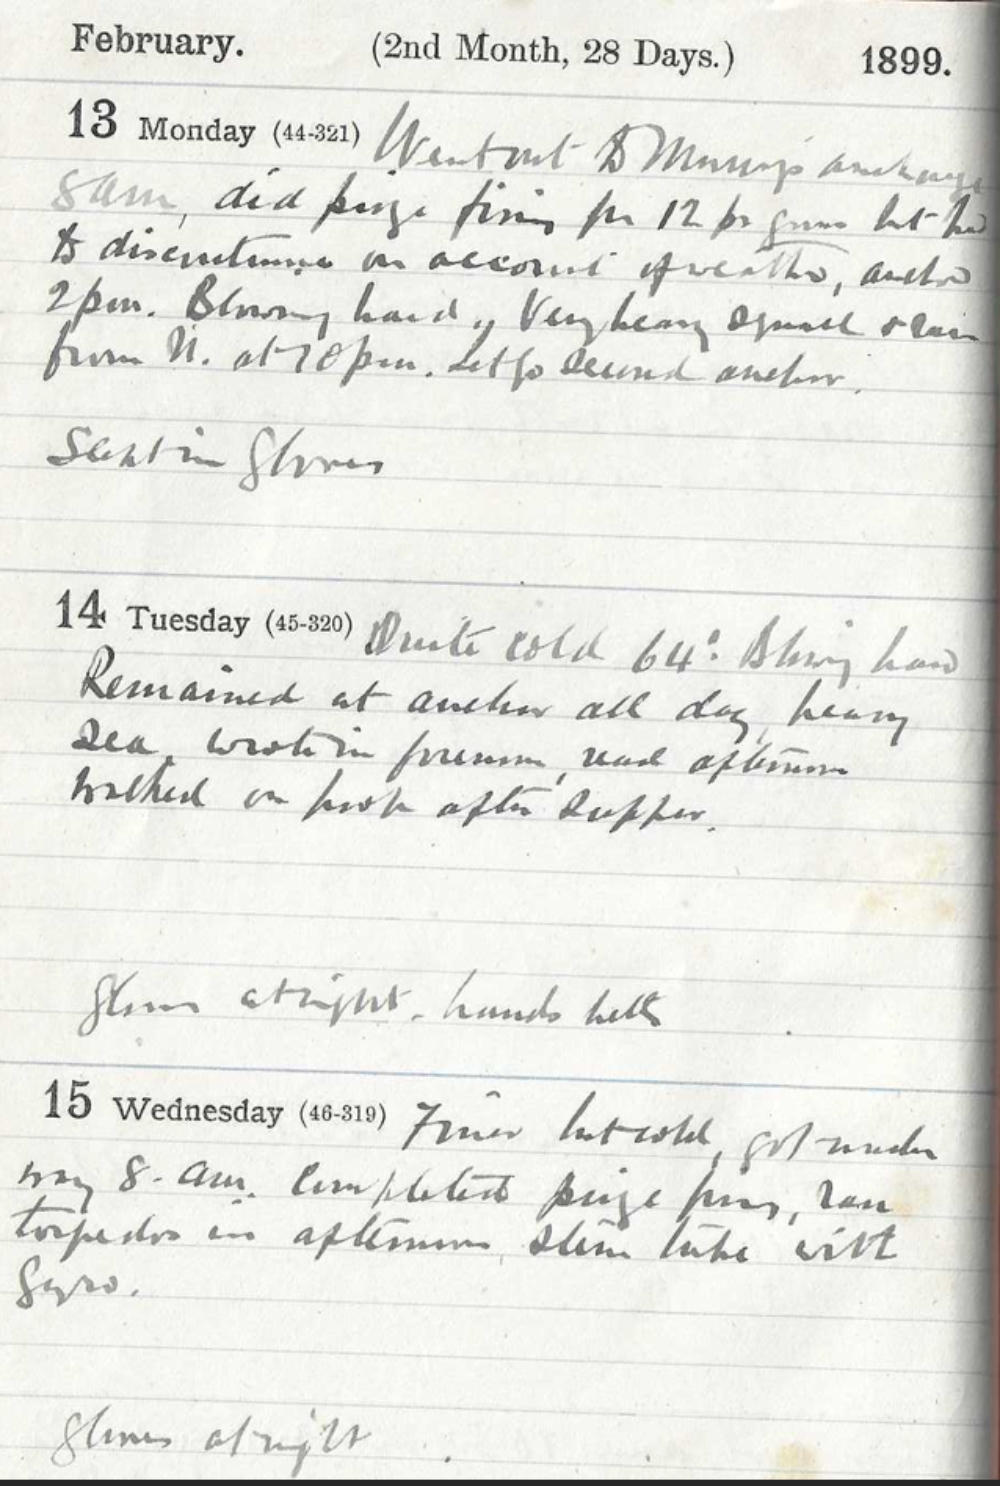 February. (2nd Month, 28 Days.) 1899.
13 Monday (44-321) Went out to Murray's anchorage
8 am, did prize firing for 12 pr guns but had
to discontinue on account of weather, anchd
2 pm. Blowing hard, Very heavy squall & rain
from N. at 10 pm. Let go second anchor.
Slept in Gloves
14 Tuesday (45-320) Quite cold 64°. Blowing hard
Remained at anchor all day, heavy
sea, wrote in forenoon, read afternoon
walked on poop after supper.
gloves at night. hands better
15 Wednesday (46-319) Finer but cold, got under
way 8. am. Completed prize firing, ran
torpedos in afternoon, stern tube with
Gyro.
gloves at night